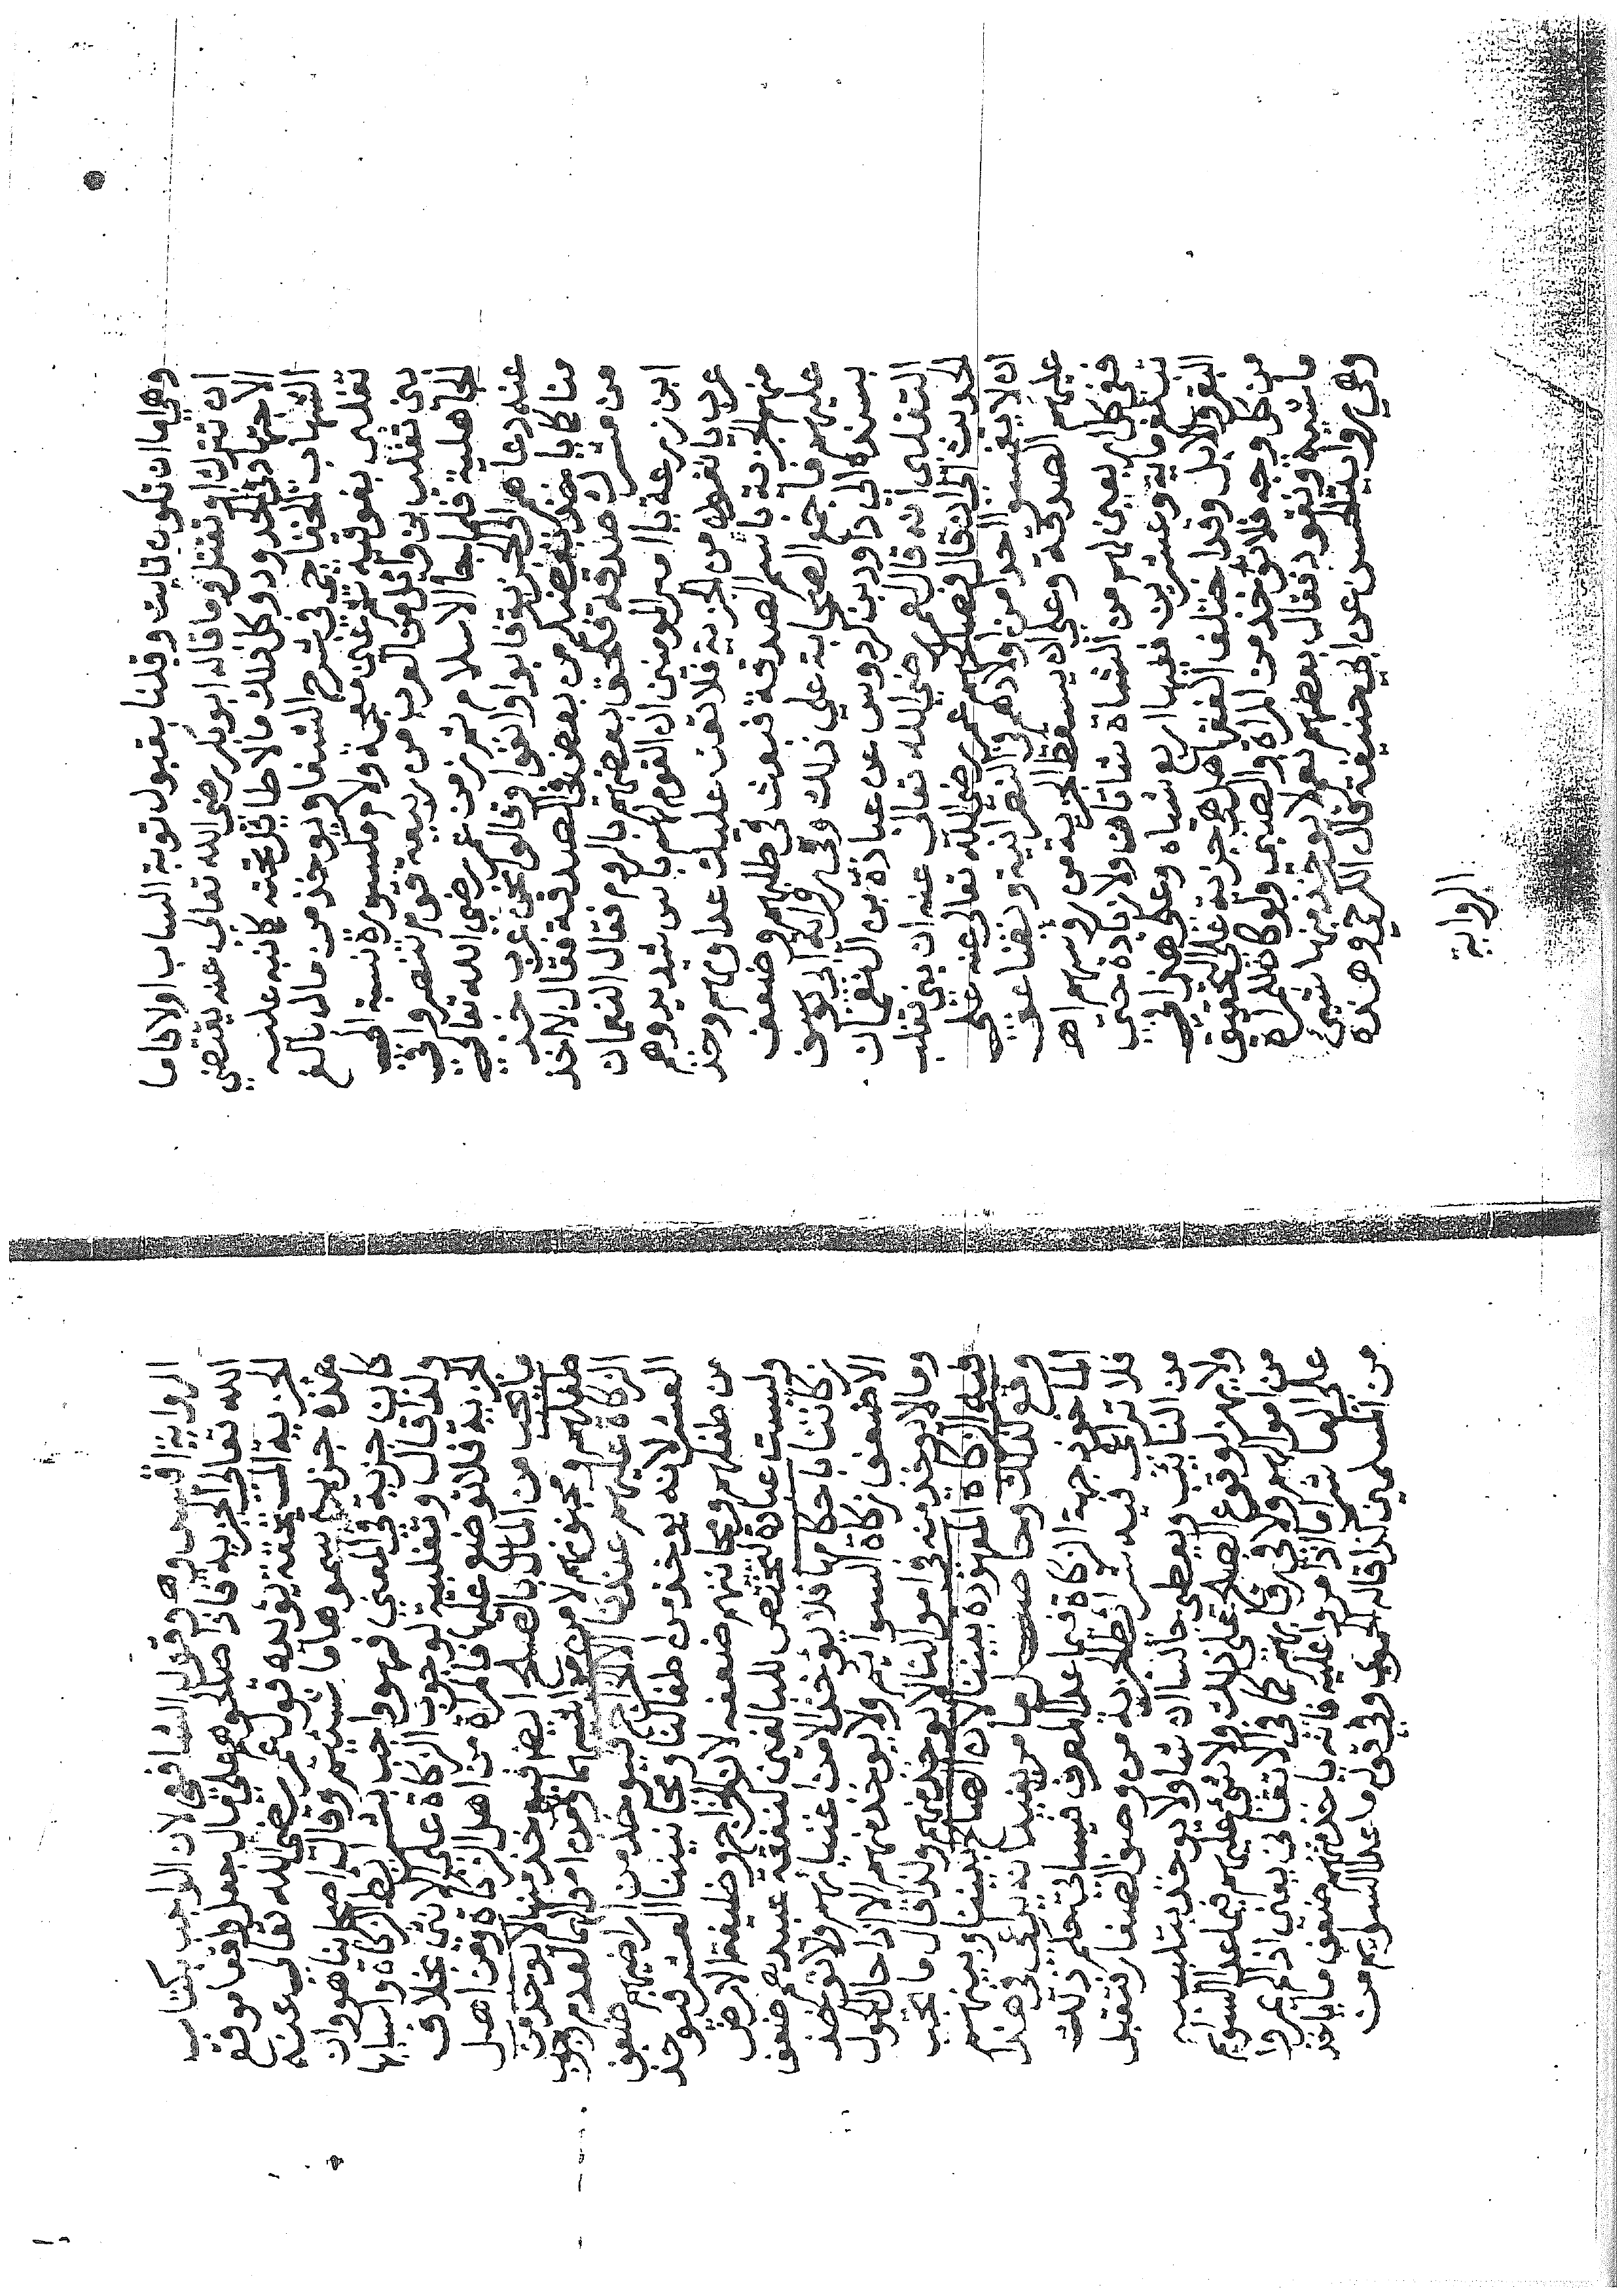 وهي اما ان تكون تابت وقلنا بقبول توبة الساب اولا فاما
ان تترك او تقتل وما قاله ابو بكر رضي الله تعالى عنه يقتضي
الاجتهاد في الحدود وكل ذلك مالا طائل تحته كما نبه عليه
الشهاب الخفاجي في شرح الشفا ويوخذ من مال بالغ
تغلبي بفوقيه ثم غين معجمة ولام مكسورة نسبة الى
بني تغلب ابن وائل من العرب من ربيعة قوم تنصروا في
الجاهلية فلما جا الاسلام ثم زمن عمر رضي الله تعالى
عنه دعاهم الى الجزية فابوا وانفوا وقالوا نحن عرب خذ
منا كما ياخذ بعضكم من بعض في الصدقة فقال لا اخذ
من مشرك صدقة فلحق بعضهم بالروم فقال النعمان
ابن زرعة يا امير المومنين ان القوم لهم باس شديد وهم
عرب يانفون من الجزية فلا تعن عليك عدوك بهم وخذ
منهم الجزية باسم الصدقة فبعث في طلبهم وضعف
عليهم فاجمع الصحابة على ذلك وفي رواية ابي يوسف
بسنده الى داود بن كردوس عن عبادة بن النعمان
التغلبي انه قال لعمر رضي الله تعالى عنه ان بني تغلب
الحديث الى ان قال فصالحهم عمر رضي الله تعالى عنه على
ان لا يغمسوا احدا من اولادهم في النصرانية وتضاعف
عليهم الصدقة وعلى ان يسقط الجزية من روسهم اهـ
ففي كل اربعين لهم من الشاة شاتان ولا زيادة حتى
تبلغ ماية وعشرين ففيها اربع شياه وعلى هذا في
البقر والابل وقد اختلف الفقها هل هي جزية على التحقيق
من كل وجه فلا تؤخذ من المراة والصبي ولو كان للمراة
ماشية ونقود فقال بعضهم نعم لا يوخذ منها شيئ
وهي رواية الحسن عن ابي حنيفة قال الكرخي وهذه
الرواية
الرواية اقيس وهو قول الشافعي لان الواجب بكتاب
الله تعالى الجزية فاذا صلحوا على مال جعل واقعا موقع
الجزية المستحقه يؤيده قول عمر رضي الله تعالى عنه
هذه جزية سموها ما شئتم وقال اصحابنا هو وان
كان جزية في المعنى فهو واجب بشرائط الزكاة واسبابها
ولذا قال وتغلبية لوجوب الزكاة على الانثى بخلاف
الجزية فلا توضع عليها فالمراة من اهل الزكاة ومن اهل
ما يجب من المال بالصلح ايضا فيوخذ منها لا يوخذ من
طفلهم ومجنونهم لا من مواشيهما ومن اموالهما لعدم وجوب
الزكاة عليهم عندنا الا الخراج فيوخذ من اراضيهم ضعف
العشر لانه يوخذ من اطفالنا ومجانيننا العشر فيوخذ
من طفلهم ومجانينهم ضعفه لان الخراج وظيفة الارض
وليست عبادة لتختص للبالغين لنفقة عبيدهم ضعف
زكاتنا باحكامها فلا يؤخذ الا من اغنيائهم ولا تؤخذ
الا ضعف زكاة السوايم ولا يوخذ منهم الا اذا حال الحول
ومالا يوخذ منه في اموالنا لا يوخذ منهم ولذا قال ما تجب
فيه الزكاة المعهودة بيننا لان الصلح بيننا وبينهم
وقع لذلك وحاصل كلامهم يفيد انه يراعى في هذا
الماخوذ جهة الزكاة فيما عدا المصرف فسياتي حكم ذلك
فلا تراعى فيه شرائط الجزية من وصف الصغار فتقبل
من النايب ويعطي جالسا ان شا ولا يوخذ بتلبيبه
ولا يهز لوقوع الصلح على ذلك ولا شيئ عليهم فيما عدا السوايم
من اموالهم ولا في رقابهم كما في الاتقاني يعني اذا لم يمروا
على العاشر اما اذا مروا عليه فانه ياخذ منهم ضعف ما ياخذ
من المسلمين كذا قاله الحموي وفي قوله ما عدا السوايم من